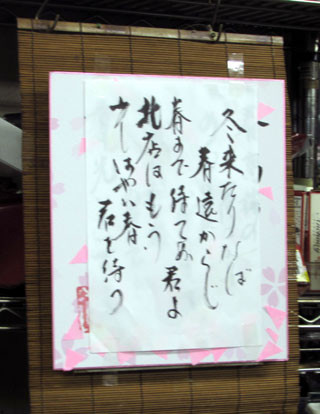 冬来たりなば
春遠からじ
春まで待てぬ君よ
北店はもう
少しはやい春
君を待つ